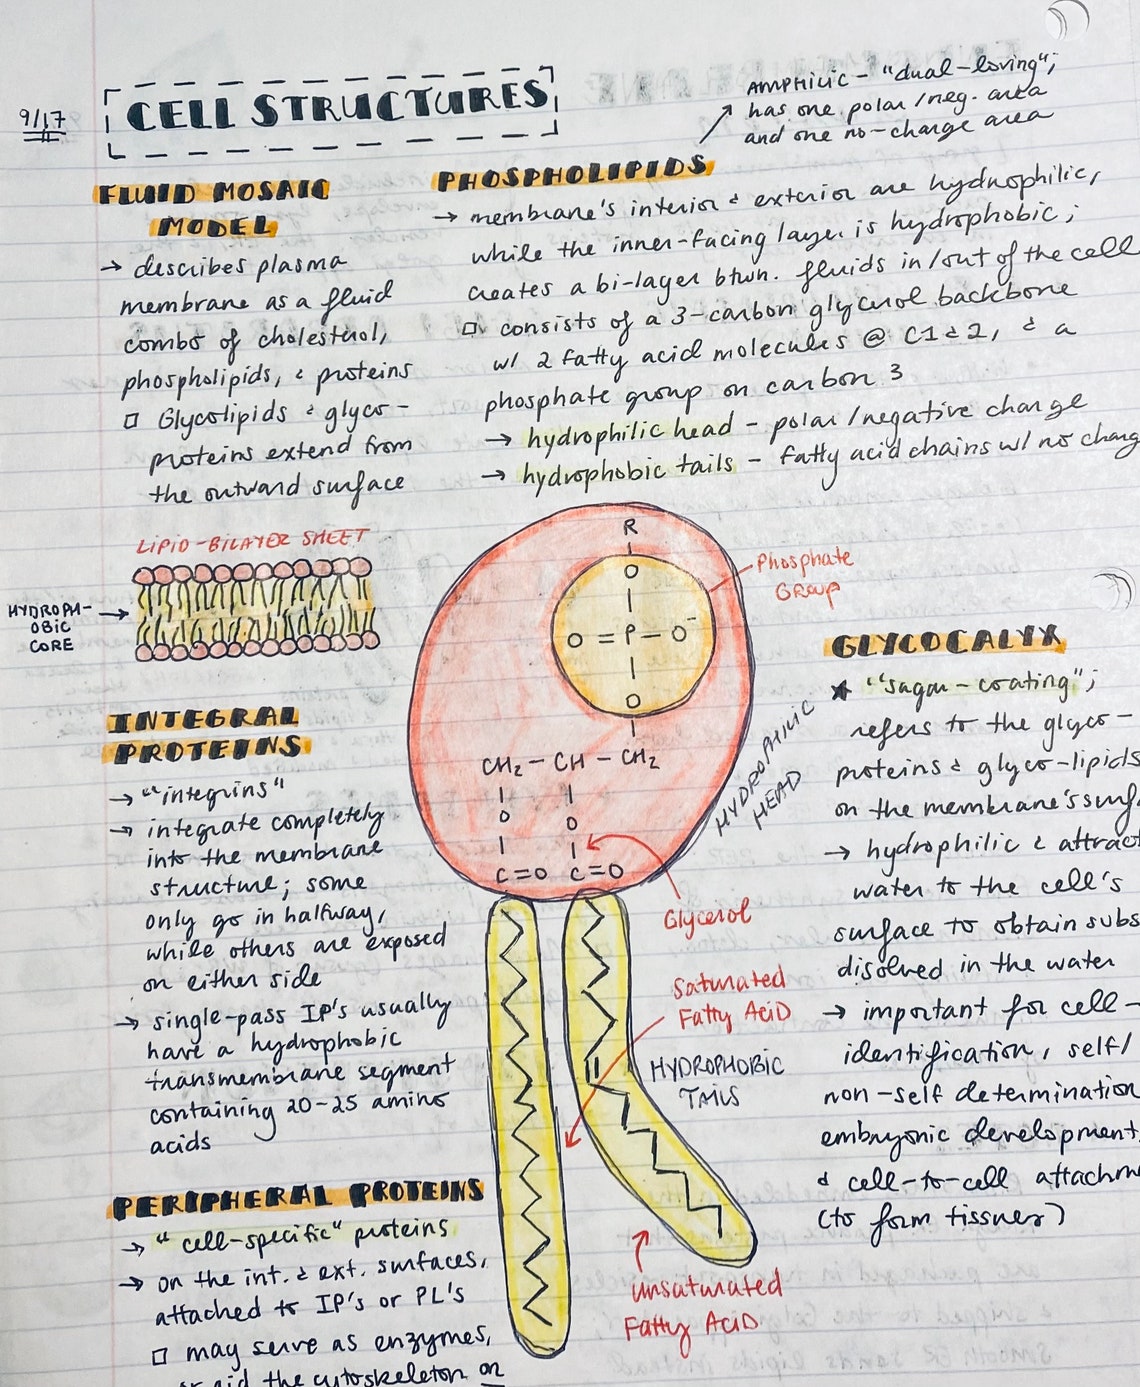 9/17
CELL STRUCTURES
AMPHILIC - "dual-loving";
has one polar/neg. area
and one no-charge area
FLUID MOSAIC
MODEL
→ describes plasma
membrane as a fluid
combo of cholesterol,
phospholipids, & proteins
□ Glycolipids & glyco-
proteins extend from
the outward surface
PHOSPHOLIPIDS
→ membrane's interior & exterior are hydrophilic,
while the inner-facing layer is hydrophobic;
creates a bi-layer btwn. fluids in/out of the cell
□ consists of a 3-carbon glycerol backbone
w/ 2 fatty acid molecules @ C1 & 2, & a
phosphate group on carbon 3
→ hydrophilic head - polar/negative charge
→ hydrophobic tails - fatty acid chains w/ no charg
LIPID-BILAYER SHEET
HYDROPH-
OBIC
CORE
R
O
O=P-O⁻
O
CH₂-CH-CH₂
O O
C=O C=O
Phosphate
GROUP
HYDROPHILIC
HEAD
Glycerol
Saturated
Fatty Acid
HYDROPHOBIC
TAILS
unsaturated
Fatty Acid
INTEGRAL
PROTEINS
→ "integrins"
→ integrate completely
into the membrane
structure; some
only go in halfway,
while others are exposed
on either side
→ single-pass IP's usually
have a hydrophobic
transmembrane segment
containing 20-25 amino
acids
PERIPHERAL PROTEINS
→ "cell-specific" proteins
→ on the int. & ext. surfaces,
attached to IP's or PL's
□ may serve as enzymes,
or aid the cytoskeleton on
GLYCOCALYX
★ "sugar-coating";
refers to the glyco-
proteins & glyco-lipids
on the membrane's surf
→ hydrophilic & attract
water to the cell's
surface to obtain subs
disolved in the water
→ important for cell-
identification, self/
non-self determination
embryonic development,
& cell-to-cell attachm
(to form tissues)